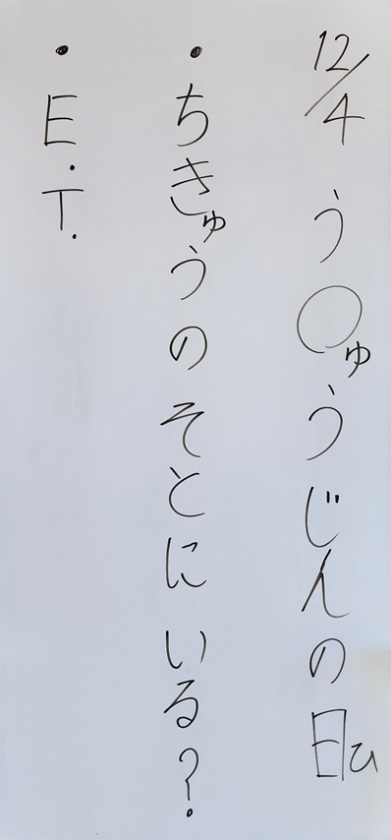 12/4 う〇ゅうじんの日ひ
・ちきゅうのそとにいる?
・E.T.